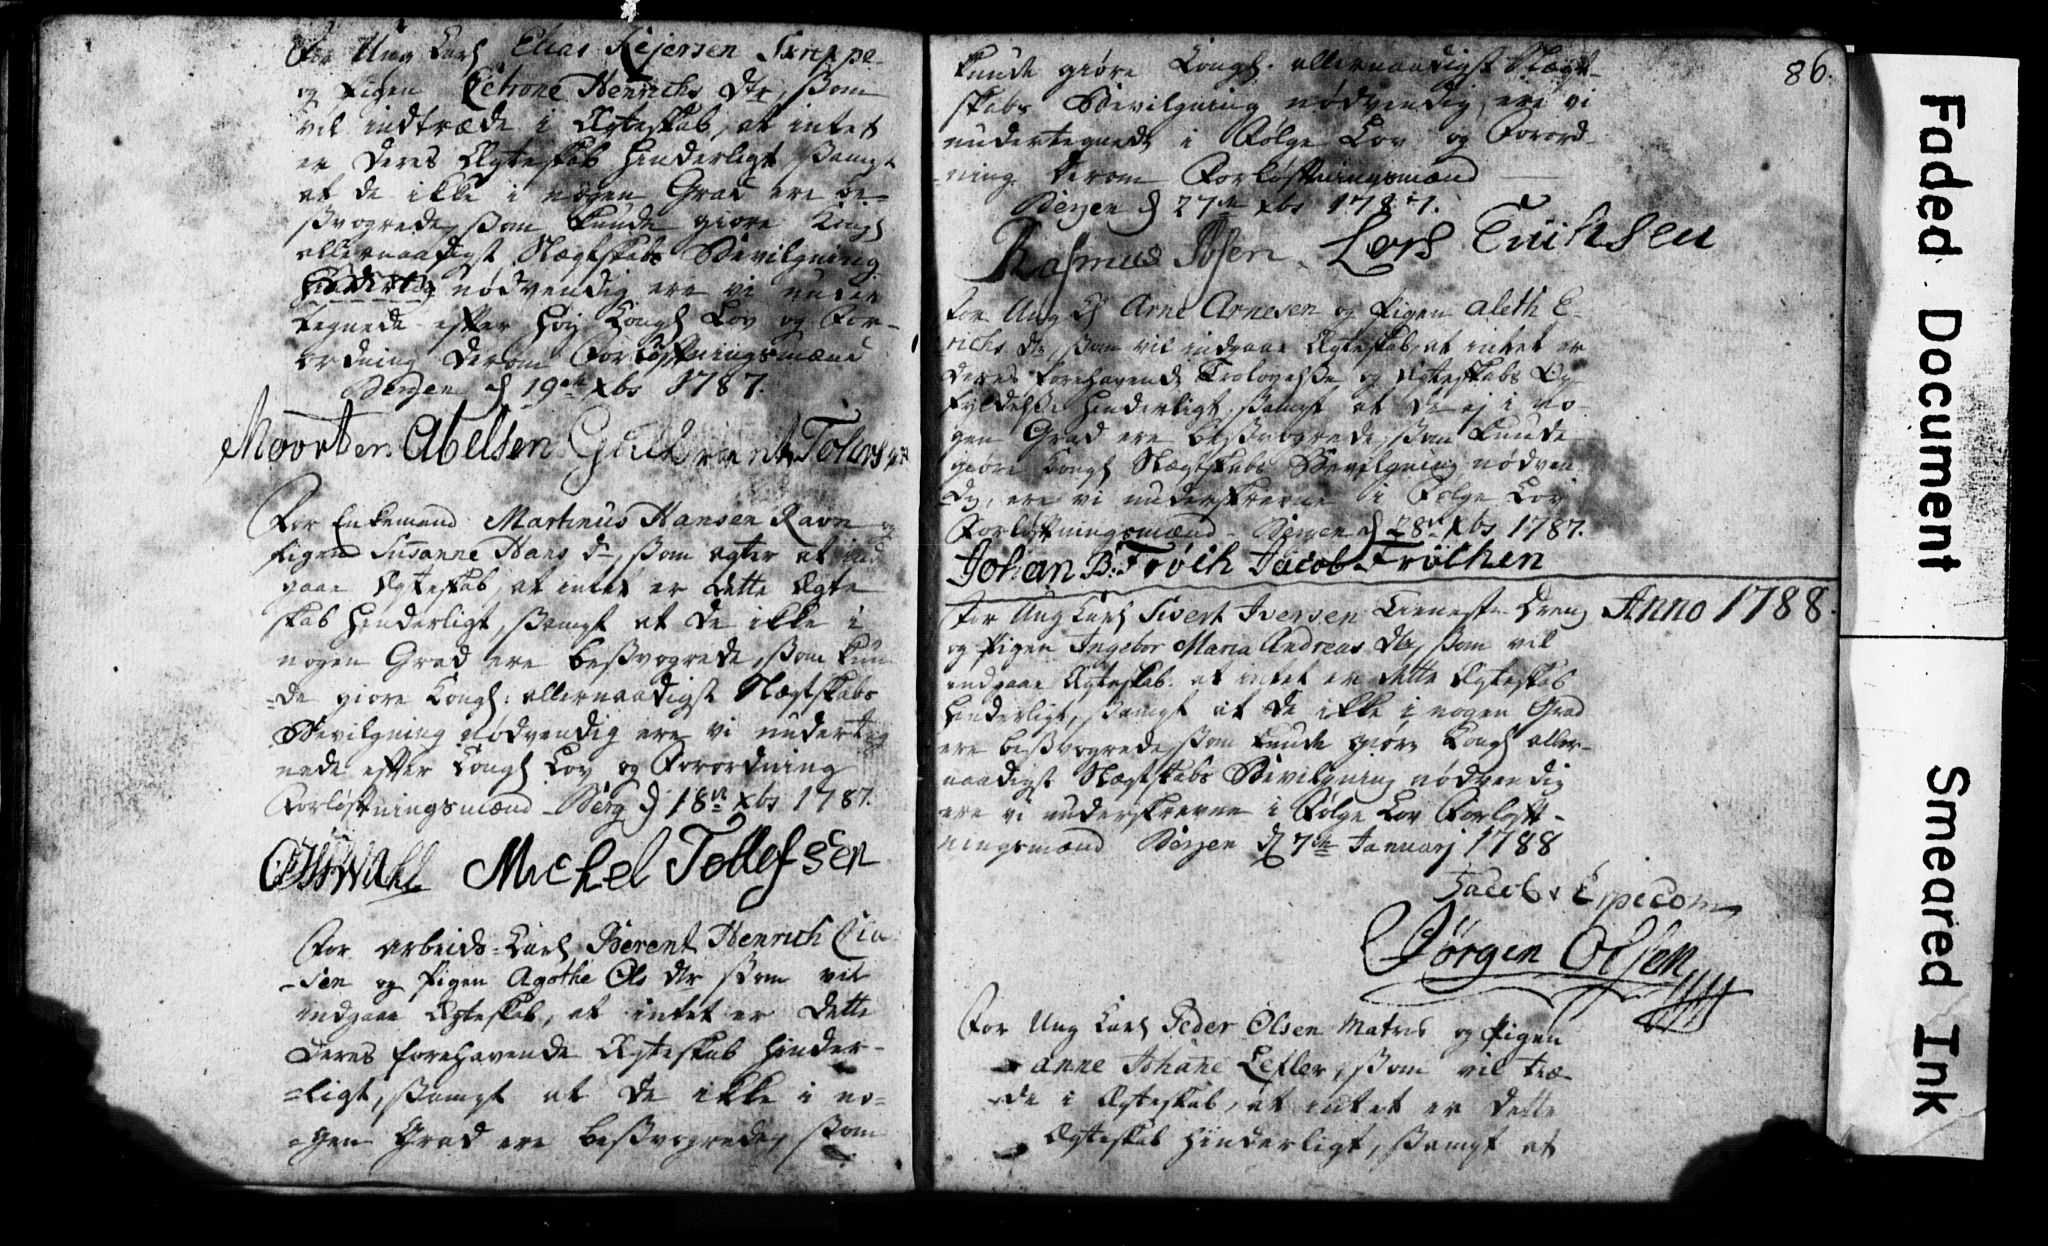 For Ung Karl Elias Rejersen Treppe
og Pigen Petrone Henrichs Dtr, som
vil indtræde i Ægteskab, at intet
er deres Ægteskab hinderligt samt
at de ikke i nogen Grad ere be-
svogrede, som kunde giøre Kongl
allernaadigst Slægtskabs Bevilgning
nødvendig ere vi under
tegnede efter høy Kongl Lov og For-
ordning derom Forløftningsmænd
Bergen d 19de Xbr 1787.
Moorten Abelsen
For Enkemand Martinus Hansen Ravn og
Pigen Susanne Hans d., som agter at ind
gaae Ægteskab, at intet er dette Ægte
skab hinderligt, samt at de ikke i
nogen Grad ere besvogrede, som kun
-de giøre Kongl. allernaadigst Slægtskabs
Bevilgning nødvendig ere vi underteg
nede efter Kongl Lov og Forordning
Forløftningsmænd Berg d 18de Xbr 1787.
Michel Tollefsen
For Arbeids-Karl Berent Henrich
-sen og Pigen Agothe Ols dtr som vil
indgaae Ægteskab, at intet er dette
deres forehavende Ægteskab hinder-
=ligt, samt at de ikke i no=
=gen Grad ere besvogrede, som
86.
kunde giøre Kongl. allernaadigst Slægt-
skabs Bevilgning nødvendig, ere vi
undertegnede i Følge Lov og Forord-
-ning derom Forløftningsmænd
Bergen d 27de Xbr 1787.
Rasmus Olsen Lars Erichsen
For Ung Kl Arne Arnesen og Pigen Aleth E-
richs dr, som vil indgaae Ægteskab, at intet er
deres forehavende Trolovelse og Ægteskabs Op-
fyldelse hinderligt, samt at de ej i no
gen Grad ere besvogrede, som kunde
giøre Kongl Slægtskabs Bevilgning nødven
dig, ere vi underskrevne i Følge Lov
Forløftningsmænd Bergen d 28de Xbr 1787.
Johan B: Frölich Jacob Frölichen
Anno 1788.
For Ung Karl Sivert Iversen Tieneste Dreng
og Pigen Ingebor Maria Andreas Dtr, som vil
indgaae Ægteskab at intet er dette Ægteskab
hinderligt, samt at de ikke i nogen Grad
ere besvogrede, som kunde giøre Kongl aller-
naadigst Slægtskabs Bevilgning nødvendig
ere vi underskrevne i Følge Lov Forløft-
ningsmænd Bergen d 7de Januarj 1788
Jacob
Jörgen Olsen
For Ung Karl Peder Olsen Matres og Pigen
Anne Johane Lefler, som vil træ-
-de i Ægteskab, at intet er dette
Ægteskab hinderligt, samt at
Faded Document
Smeared Ink